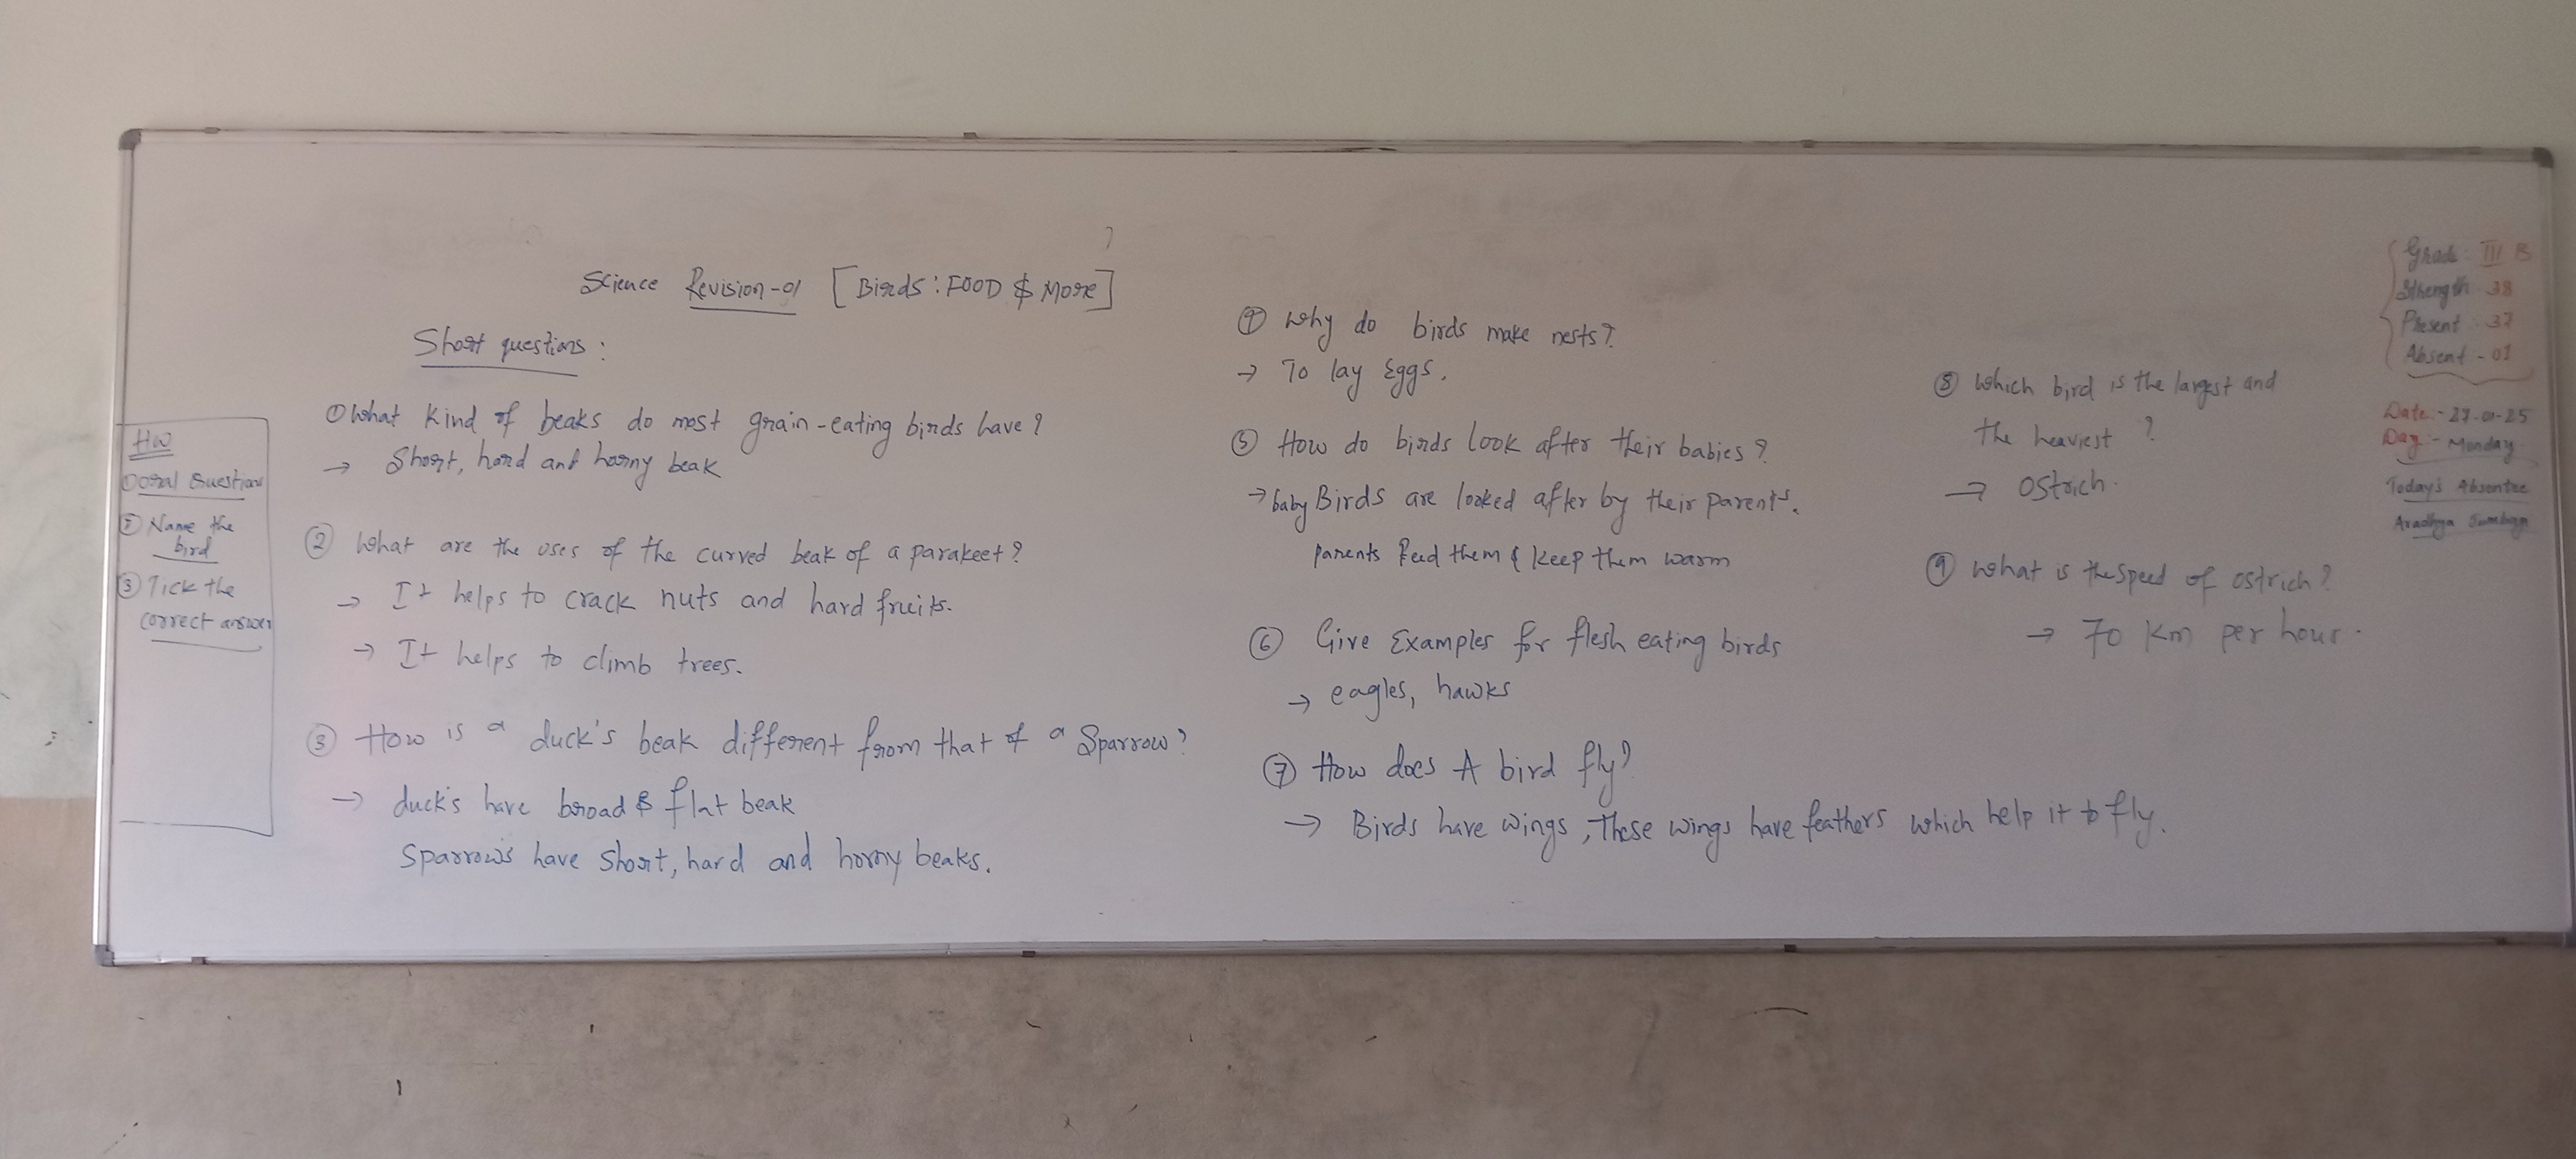 Science Revision-01 [Birds: FOOD & More]
Short questions:
HW
① Oral Questions
② Name the
bird
③ Tick the
correct answer
① What kind of beaks do most grain-eating birds have?
→ Short, hard and horny beak
② What are the uses of the curved beak of a parakeet?
→ It helps to crack nuts and hard fruits.
→ It helps to climb trees.
③ How is a duck's beak different from that of a Sparrow?
→ duck's have broad & flat beak
Sparrow's have short, hard and horny beaks.
④ Why do birds make nests?
→ To lay Eggs.
⑤ How do birds look after their babies?
→ baby Birds are looked after by their parents.
parents feed them & keep them warm
⑥ Give Examples for flesh eating birds
→ eagles, hawks
⑦ How does A bird fly?
→ Birds have wings, These wings have feathers which help it to fly.
⑧ Which bird is the largest and
the heaviest ?
→ Ostrich.
⑨ What is the speed of ostrich?
→ 70 km per hour.
Grade: III B
Strength 38
Present : 37
Absent - 01
Date:- 27-01-25
Day:- Monday
Today's Absentee
Aradhya